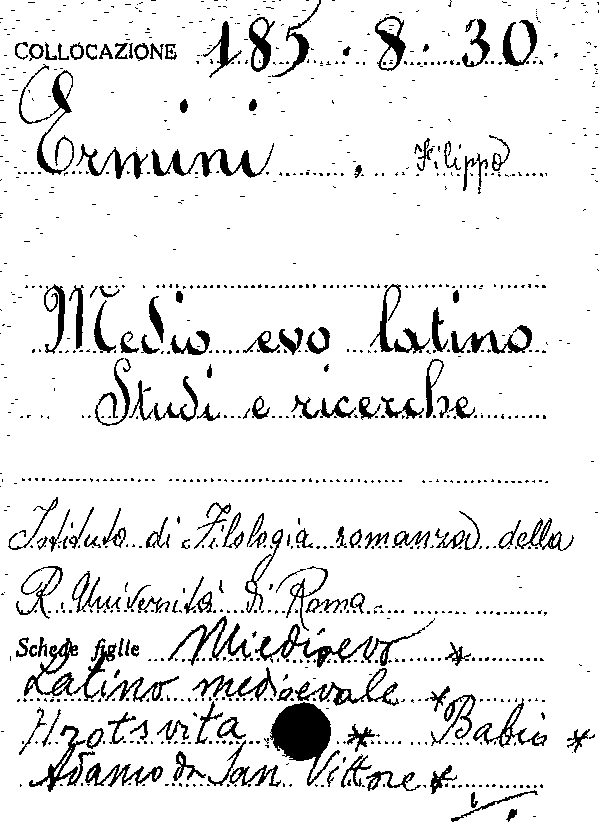 COLLOCAZIONE 185.8.30.
Ermini, Filippo
Medio evo latino
Studi e ricerche
Istituto di Filologia romanza della
R. Università di Roma.
Schede figlie Miedioevo *
Latino medioevale *
Hrotsvita * Babio *
Adamo di San Vittore *